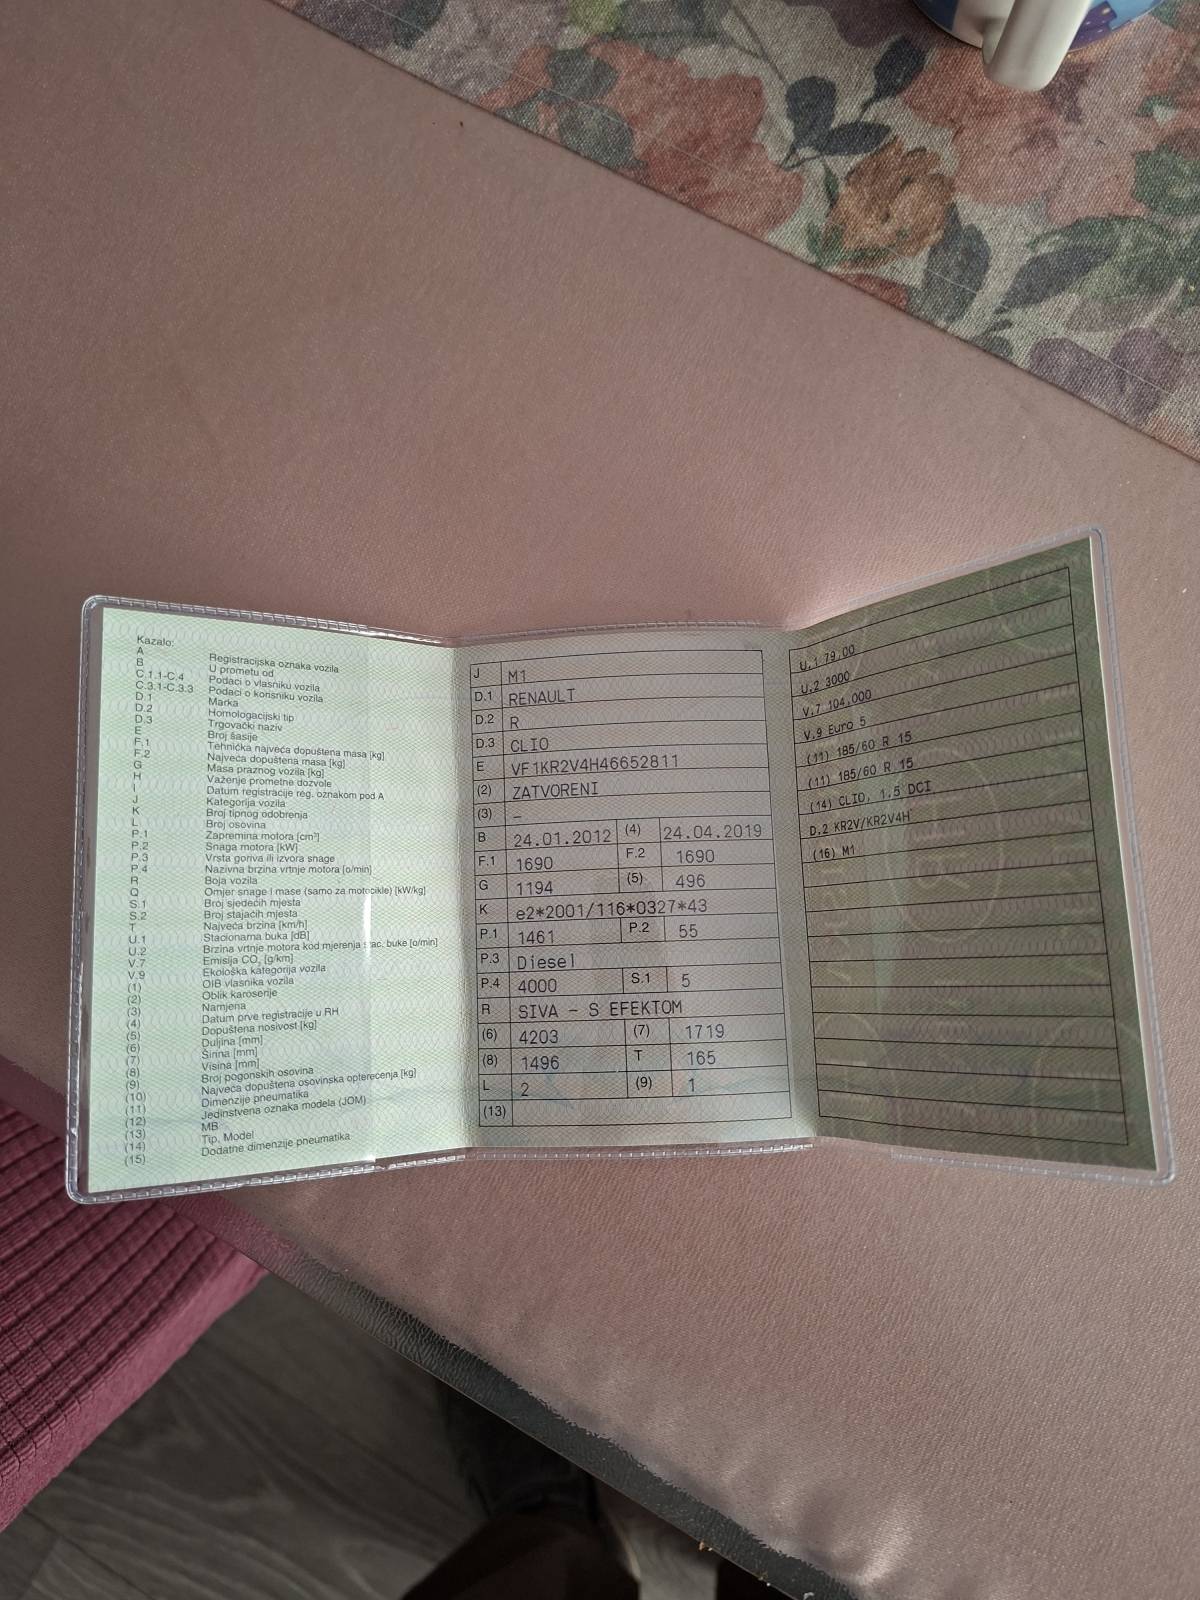 Kazalo:
A Registracijska oznaka vozila
B U prometu od
C.1.1-C.4 Podaci o vlasniku vozila
C.3.1-C.3.3 Podaci o korisniku vozila
D.1 Marka
D.2 Homologacijski tip
D.3 Trgovački naziv
E Broj šasije
F.1 Tehnička najveća dopuštena masa [kg]
F.2 Najveća dopuštena masa [kg]
G Masa praznog vozila [kg]
H Važenje prometne dozvole
I Datum registracije reg. oznakom pod A
J Kategorija vozila
K Broj tipnog odobrenja
L Broj osovina
P.1 Zapremina motora [cm³]
P.2 Snaga motora [kW]
P.3 Vrsta goriva ili izvora snage
P.4 Nazivna brzina vrtnje motora [o/min]
R Boja vozila
Q Omjer snage i mase (samo za motocikle) [kW/kg]
S.1 Broj sjedećih mjesta
S.2 Broj stajaćih mjesta
T Najveća brzina [km/h]
U.1 Stacionarna buka [dB]
U.2 Brzina vrtnje motora kod mjerenja stac. buke [o/min]
V.7 Emisija CO₂ [g/km]
V.9 Ekološka kategorija vozila
(1) OIB vlasnika vozila
(2) Oblik karoserije
(3) Namjena
(4) Datum prve registracije u RH
(5) Dopuštena nosivost [kg]
(6) Duljina [mm]
(7) Širina [mm]
(8) Visina [mm]
(9) Broj pogonskih osovina
(10) Najveća dopuštena osovinska opterećenja [kg]
(11) Dimenzije pneumatika
(12) Jedinstvena oznaka modela (JOM)
(13) MB
(14) Tip, Model
(15) Dodatne dimenzije pneumatika
J M1
D.1 RENAULT
D.2 R
D.3 CLIO
E VF1KR2V4H46652811
(2) ZATVORENI
(3) –
B 24.01.2012 (4) 24.04.2019
F.1 1690 F.2 1690
G 1194 (5) 496
K e2*2001/116*0327*43
P.1 1461 P.2 55
P.3 Diesel
P.4 4000 S.1 5
R SIVA - S EFEKTOM
(6) 4203 (7) 1719
(8) 1496 T 165
L 2 (9) 1
(13)
U.1 79,00
U.2 3000
V.7 104,000
V.9 Euro 5
(11) 185/60 R 15
(11) 185/60 R 15
(14) CLIO, 1.5 DCI
D.2 KR2V/KR2V4H
(16) M1